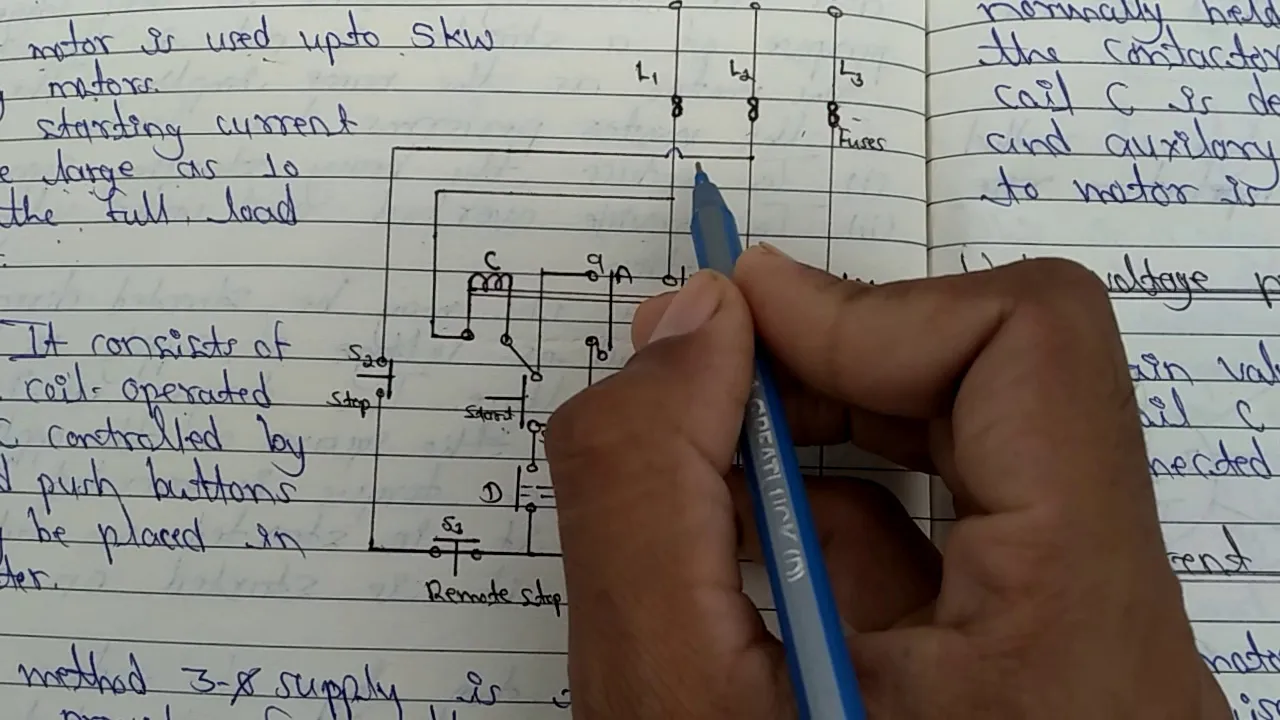 motor is used upto 5kw
motors.
starting current
large as 10
the full load
It consists of
coil-operated
C controlled by
push buttons
be placed in
method 3-ø supply is
L1
L2
L3
Fuses
C
a
A
b
S2
Stop
Start
D
S1
Remote stop
normally held
the contactor
cail C is de
and auxilory
to motor is
voltage p
ain val
ail C
nected